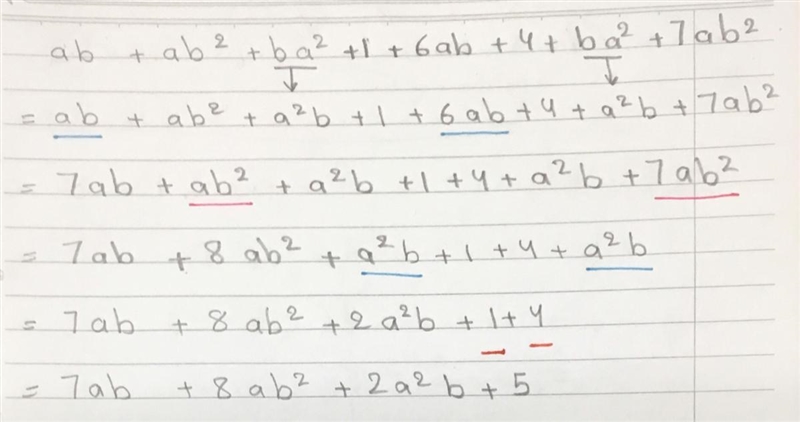 ab + ab² + ba² + 1 + 6ab + 4 + ba² + 7ab²
= ab + ab² + a²b + 1 + 6ab + 4 + a²b + 7ab²
= 7ab + ab² + a²b + 1 + 4 + a²b + 7ab²
= 7ab + 8ab² + a²b + 1 + 4 + a²b
= 7ab + 8ab² + 2a²b + 1 + 4
= 7ab + 8ab² + 2a²b + 5